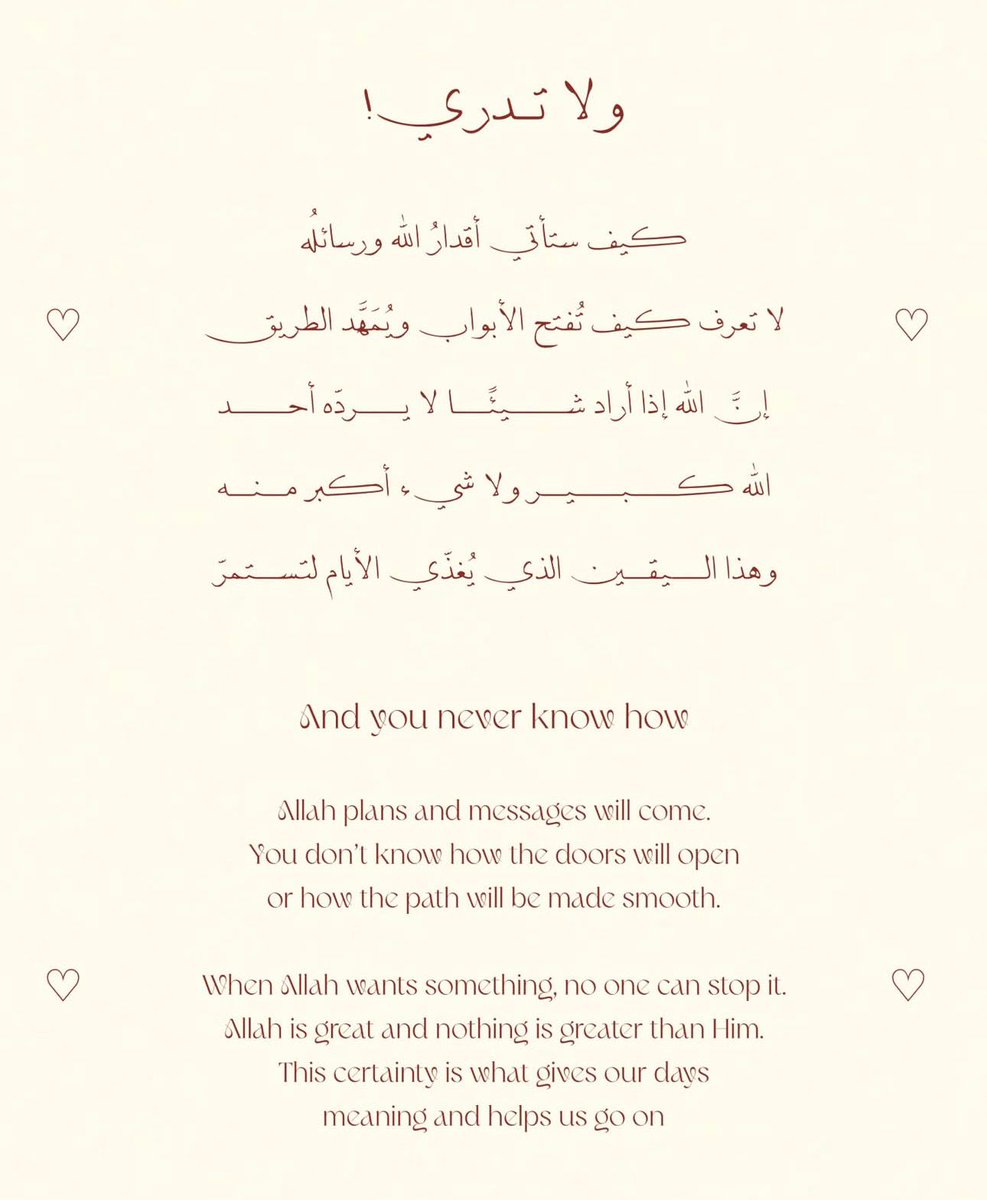 ولا تدري!
كيف ستأتي أقدارُ الله ورسائلُه
لا تعرف كيف تُفتح الأبواب ويُمَهَّد الطريق
إنَّ الله إذا أراد شيئًا لا يردّه أحد
الله كبير ولا شيء أكبر منه
وهذا اليقين الذي يُغذّي الأيام لتستمرّ
And you never know how
Allah plans and messages will come.
You don't know how the doors will open
or how the path will be made smooth.
When Allah wants something, no one can stop it.
Allah is great and nothing is greater than Him.
This certainty is what gives our days
meaning and helps us go on